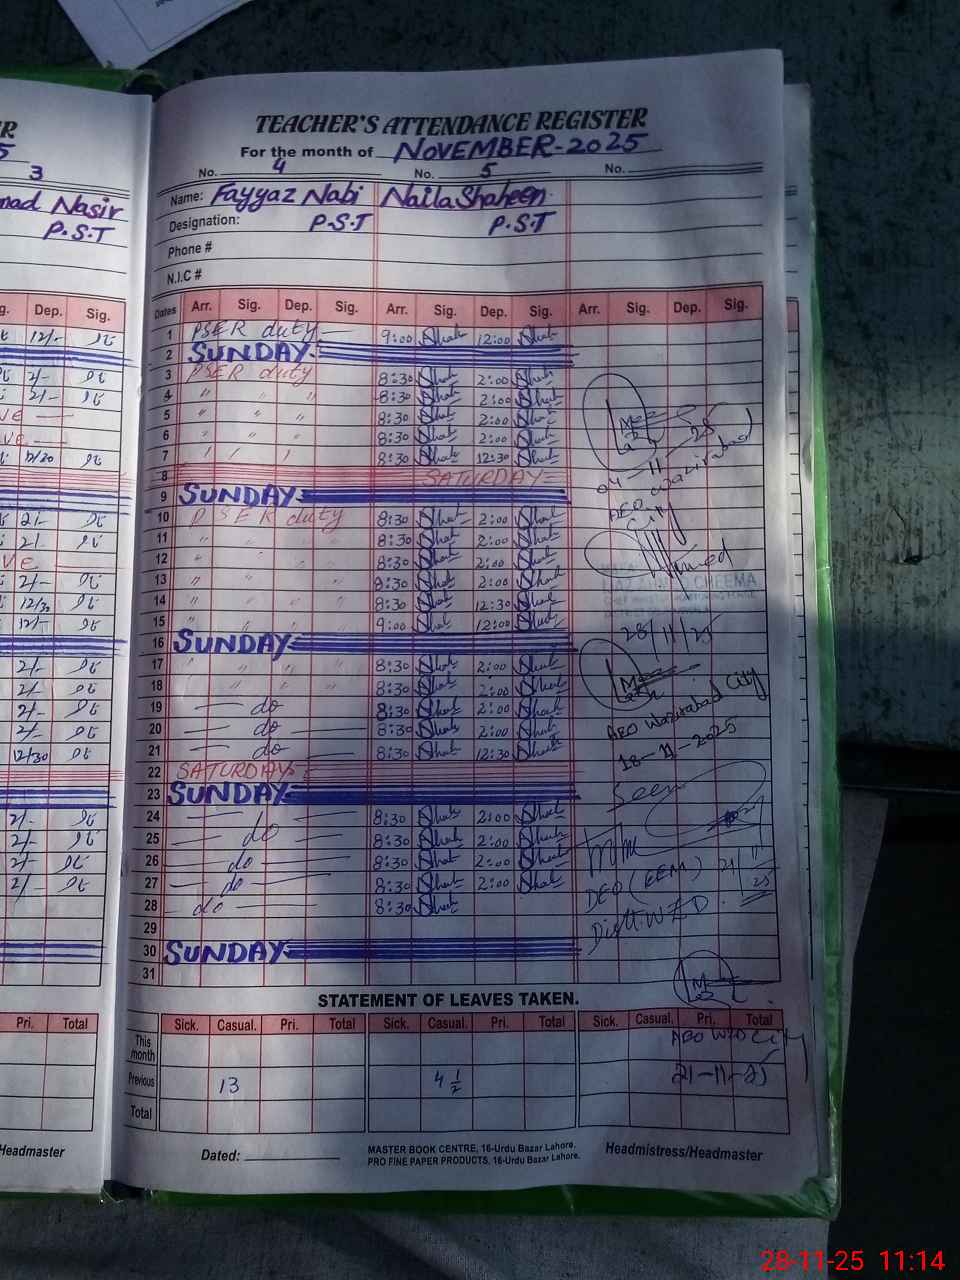 TEACHER'S ATTENDANCE REGISTER
For the month of NOVEMBER-2025
3 No. 4 No. 5 No.
Nasir Name: Fayyaz Nabi Naila Shaheen
P.S.T Designation: P.S.T P.S.T
Phone #
N.I.C #
Dep. Sig. Dates Arr. Sig. Dep. Sig. Arr. Sig. Dep. Sig. Arr. Sig. Dep. Sig.
12/- 1 PSER duty 9:00 12:00
2 SUNDAY
2/- 3 PSER duty 8:30 2:00
2/- 4 " " " 8:30 2:00
5 " " " 8:30 2:00
6 " " " 8:30 2:00
12/30 7 " " " 8:30 12:30
8 SATURDAY
9 SUNDAY
2/- 10 PSER duty 8:30 2:00
2/- 11 " " " 8:30 2:00
12 " " " 8:30 2:00
2/- 13 " " " 8:30 2:00
12/30 14 " " " " 8:30 12:30
12/- 15 " 9:00 12:00
16 SUNDAY
2/- 17 " " " " 8:30 2:00
2/- 18 " " " " 8:30 2:00
2/- 19 — do — 8:30 2:00
2/- 20 — do — 8:30 2:00
12/30 21 — do — 8:30 12:30
22 SATURDAY
23 SUNDAY
2/- 24 — do — 8:30 2:00
2/- 25 — do — 8:30 2:00
2/- 26 — do — 8:30 2:00
2/- 27 — do — 8:30 2:00
28 — do — 8:30
29
30 SUNDAY
31
04-11-25
AEO Wazirabad
City
Ahmed
CHEEMA
28/11/25
AEO Wazirabad City
18-11-2025
Seen
DEO (EEM)
Distt. WZD
STATEMENT OF LEAVES TAKEN.
Pri. Total Sick. Casual. Pri. Total Sick. Casual. Pri. Total Sick. Casual. Pri. Total
This month
AEO WZD City
Previous 13 4 1/2 21-11-25
Total
Headmaster Dated: MASTER BOOK CENTRE, 16-Urdu Bazar Lahore. Headmistress/Headmaster
PRO FINE PAPER PRODUCTS, 16-Urdu Bazar Lahore.
28-11-25 11:14